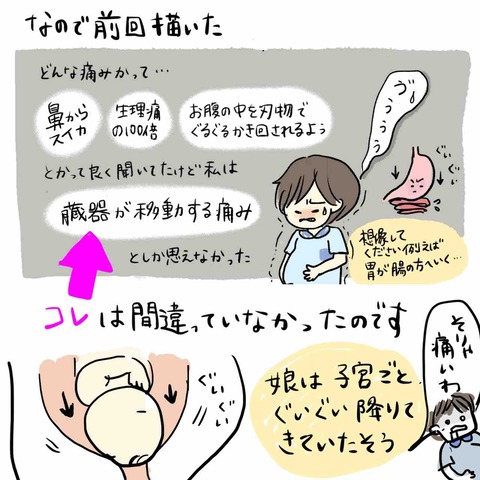 なので前回描いた
どんな痛みかって…
鼻から
スイカ
生理痛
の100倍
お腹の中を刃物で
ぐるぐるかき回されるよう
ゔぅ
ううう
とかって良く聞いてたけど私は
臓器が移動する痛み
としか思えなかった
ぐぃー
ぐぃ
想像して
ください例えば
胃が腸の方へいく…
コレは間違っていなかったのです
ぐいぐい
娘は子宮ごと
ぐいぐい降りて
きていたそう
そりゃ
痛いわ